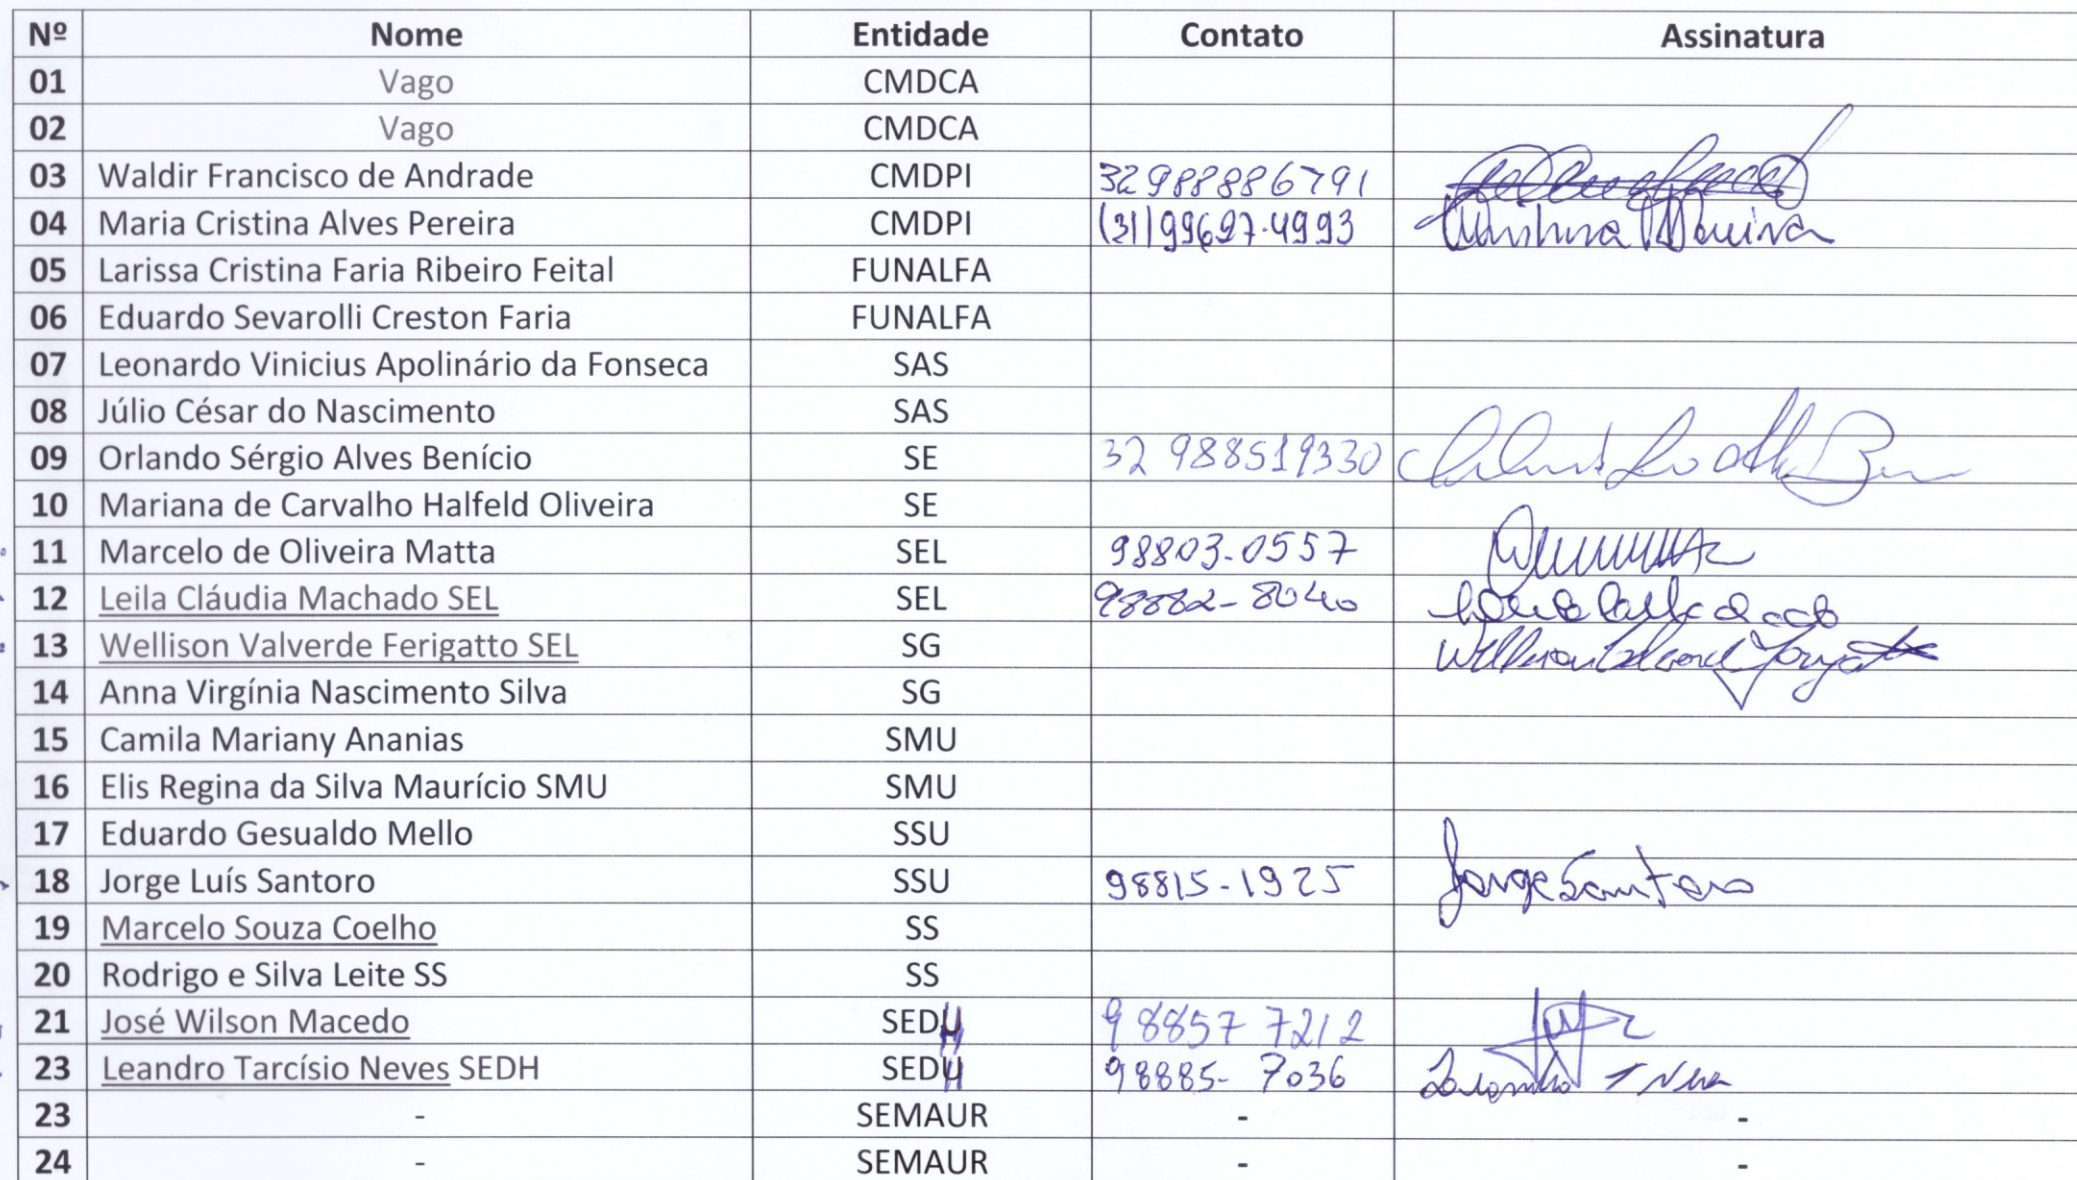 Nº Nome Entidade Contato Assinatura
01 Vago CMDCA
02 Vago CMDCA
03 Waldir Francisco de Andrade CMDPI 32988886791
04 Maria Cristina Alves Pereira CMDPI (31)99697-4993 Cristina Pereira
05 Larissa Cristina Faria Ribeiro Feital FUNALFA
06 Eduardo Sevarolli Creston Faria FUNALFA
07 Leonardo Vinicius Apolinário da Fonseca SAS
08 Júlio César do Nascimento SAS
09 Orlando Sérgio Alves Benício SE 32 988519330
10 Mariana de Carvalho Halfeld Oliveira SE
11 Marcelo de Oliveira Matta SEL 98803-0557
12 Leila Cláudia Machado SEL SEL 98882-8040
13 Wellison Valverde Ferigatto SEL SG
14 Anna Virgínia Nascimento Silva SG
15 Camila Mariany Ananias SMU
16 Elis Regina da Silva Maurício SMU SMU
17 Eduardo Gesualdo Mello SSU
18 Jorge Luís Santoro SSU 98815-1925 Jorge Santoro
19 Marcelo Souza Coelho SS
20 Rodrigo e Silva Leite SS SS
21 José Wilson Macedo SEDH 98857 7212
23 Leandro Tarcísio Neves SEDH SEDH 98885- 7036 Leandro T Neves
23 - SEMAUR - -
24 - SEMAUR - -